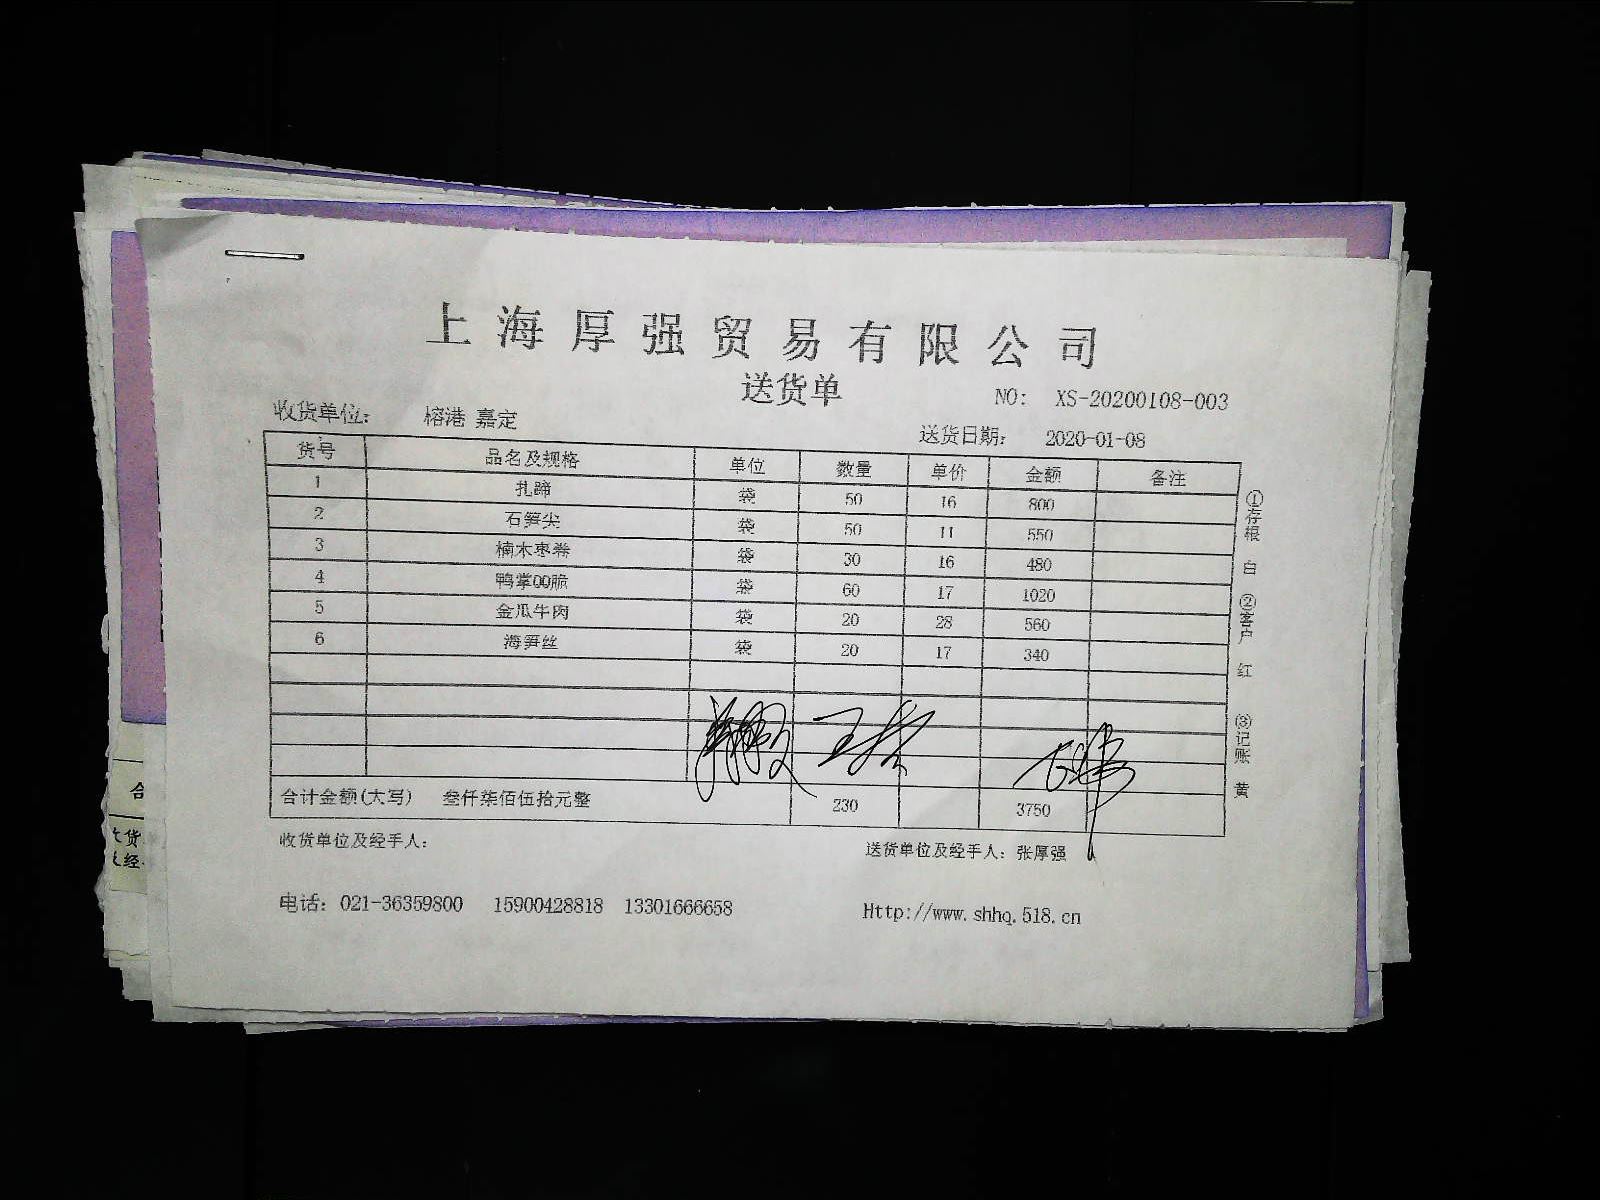 上海厚强贸易有限公司
送货单
NO: XS-20200108-003
收货单位: 榕港 嘉定
送货日期: 2020-01-08
货号 品名及规格 单位 数量 单价 金额 备注
1 扎蹄 袋 50 16 800
2 石笋尖 袋 50 11 550
3 楠木枣卷 袋 30 16 480
4 鸭掌QQ脆 袋 60 17 1020
5 金瓜牛肉 袋 20 28 560
6 海笋丝 袋 20 17 340
合计金额(大写) 叁仟柒佰伍拾元整 230 3750
收货单位及经手人:
送货单位及经手人: 张厚强
电话: 021-36359800 15900428818 13301666658
Http://www.shhq.518.cn
①存根 白 ②客户 红 ③记账 黄
合